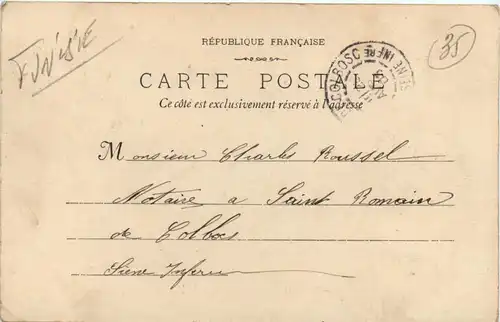 TUNISIE
35
RÉPUBLIQUE FRANÇAISE
CARTE POSTALE
Ce côté est exclusivement réservé à l'adresse
COLBOSC
SEINE INFRE
Monsieur Charles Roussel
Notaire a Saint Romain
de Colbos
Seine Inferu